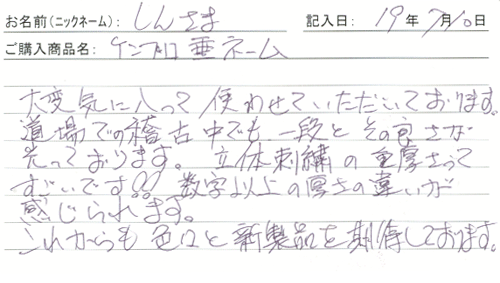 お名前(ニックネーム): しんさま 記入日: 19年 7月10日
ご購入商品名: ケンブロ 垂ネーム
大変気に入って 使わせていただいております。
道場での稽古中でも、一段と その良さが
光っております。 立体刺繍の重厚さって
すごいです!! 数字以上の厚さの違いが
感じられます。
これからも 色々と 新製品を期待しております。